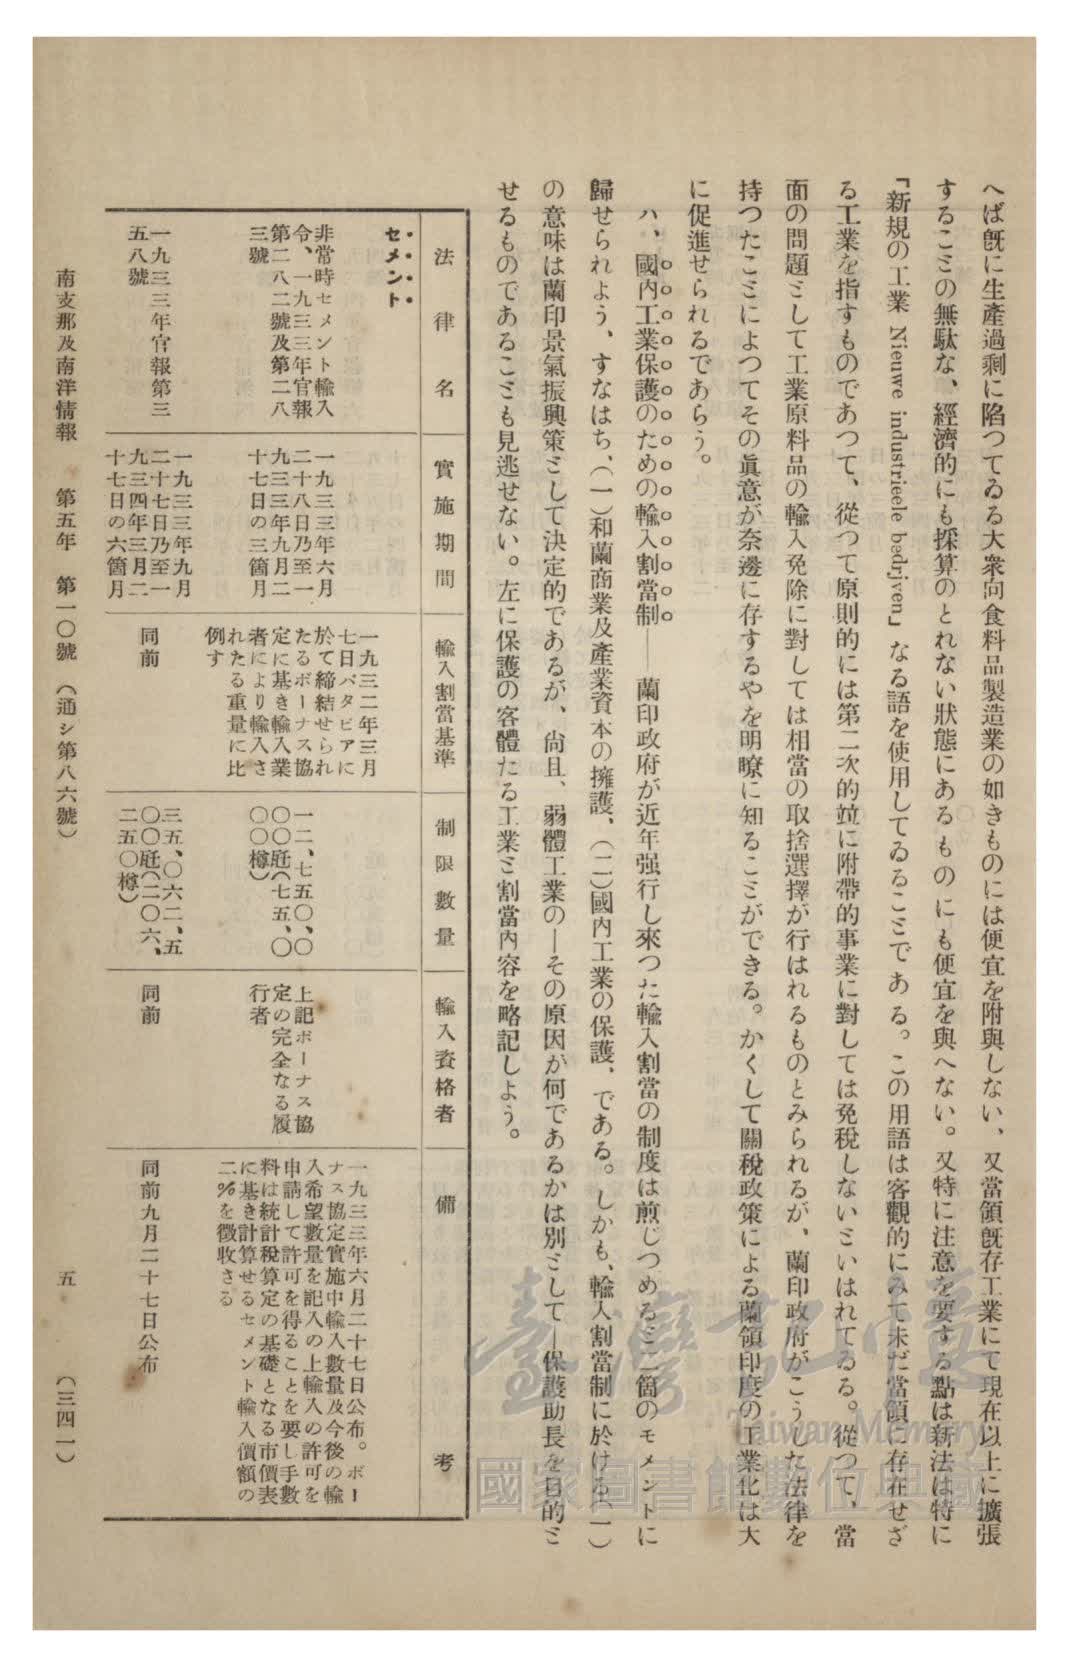 へば旣に生產過剩に陷つてゐる大衆向食料品製造業の如きものには便宜を附與しない、又當領旣存工業にて現在以上に擴張
することの無駄な、經濟的にも採算のとれない狀態にあるものにも便宜を與へない。又特に注意を要する點は新法は特に
「新規の工業 Nieuwe industrieele bedrjven」なる語を使用してゐることである。この用語は客觀的にみて未だ當領に存在せざ
る工業を指すものであつて、從つて原則的には第二次的竝に附帶的事業に對しては免稅しないといはれてゐる。從つて、當
面の問題として工業原料品の輸入免除に對しては相當の取捨選擇が行はれるものとみられるが、蘭印政府がこうした法律を
持つたことによつてその眞意が奈邊に存するやを明瞭に知ることができる。かくして關稅政策による蘭領印度の工業化は大
に促進せられるであらう。
ハ、國內工業保護のための輸入割當制――蘭印政府が近年强行し來つた輸入割當の制度は煎じつめると二箇のモメントに
歸せられよう、すなはち、(一)和蘭商業及產業資本の擁護、(二)國內工業の保護、である。しかも、輸入割當制に於ける(一)
の意味は蘭印景氣振興策として決定的であるが、尙且、弱體工業の―その原因が何であるかは別として―保護助長を目的と
せるものであることも見逃せない。左に保護の客體たる工業と割當內容を略記しよう。
法律名
實施期間
輸入割當基準
制限數量
輸入資格者
備考
セメント
非常時セメント輸入
令、一九三三年官報
第二八二號及第二八
三號
一九三三年六月
二十八日乃至一
九三三年九月二
十七日の三箇月
一九三二年三月
七日バタビアに
於て締結せられ
たるボーナス協
定に基き輸入業
者により輸入さ
れたる重量に比
例す
一二、七五〇、〇
〇〇瓩(七五、〇
〇〇樽)
上記ボーナス協
定の完全なる履
行者
一九三三年六月二十七日公布。ボー
ナス協定實施中輸入數量及今後の輸
入希望數量を記入の上輸入の許可を
申請して許可を得ることを要し手數
料は統計稅算定の基礎となる市價表
に基き計算せるセメント輸入價額の
二%を徵收さる
一九三三年官報第三
五八號
一九三三年九月
二十七日乃至一
九三四年三月二
十七日の六箇月
同前
三五、〇六二、五
〇〇瓩(二〇六、
二五〇樽)
同前
同前九月二十七日公布
南支那及南洋情報 第五年 第一〇號 (通シ第八六號) 五 (三四一)
臺灣記憶
Taiwan Memory
國家圖書館數位典藏